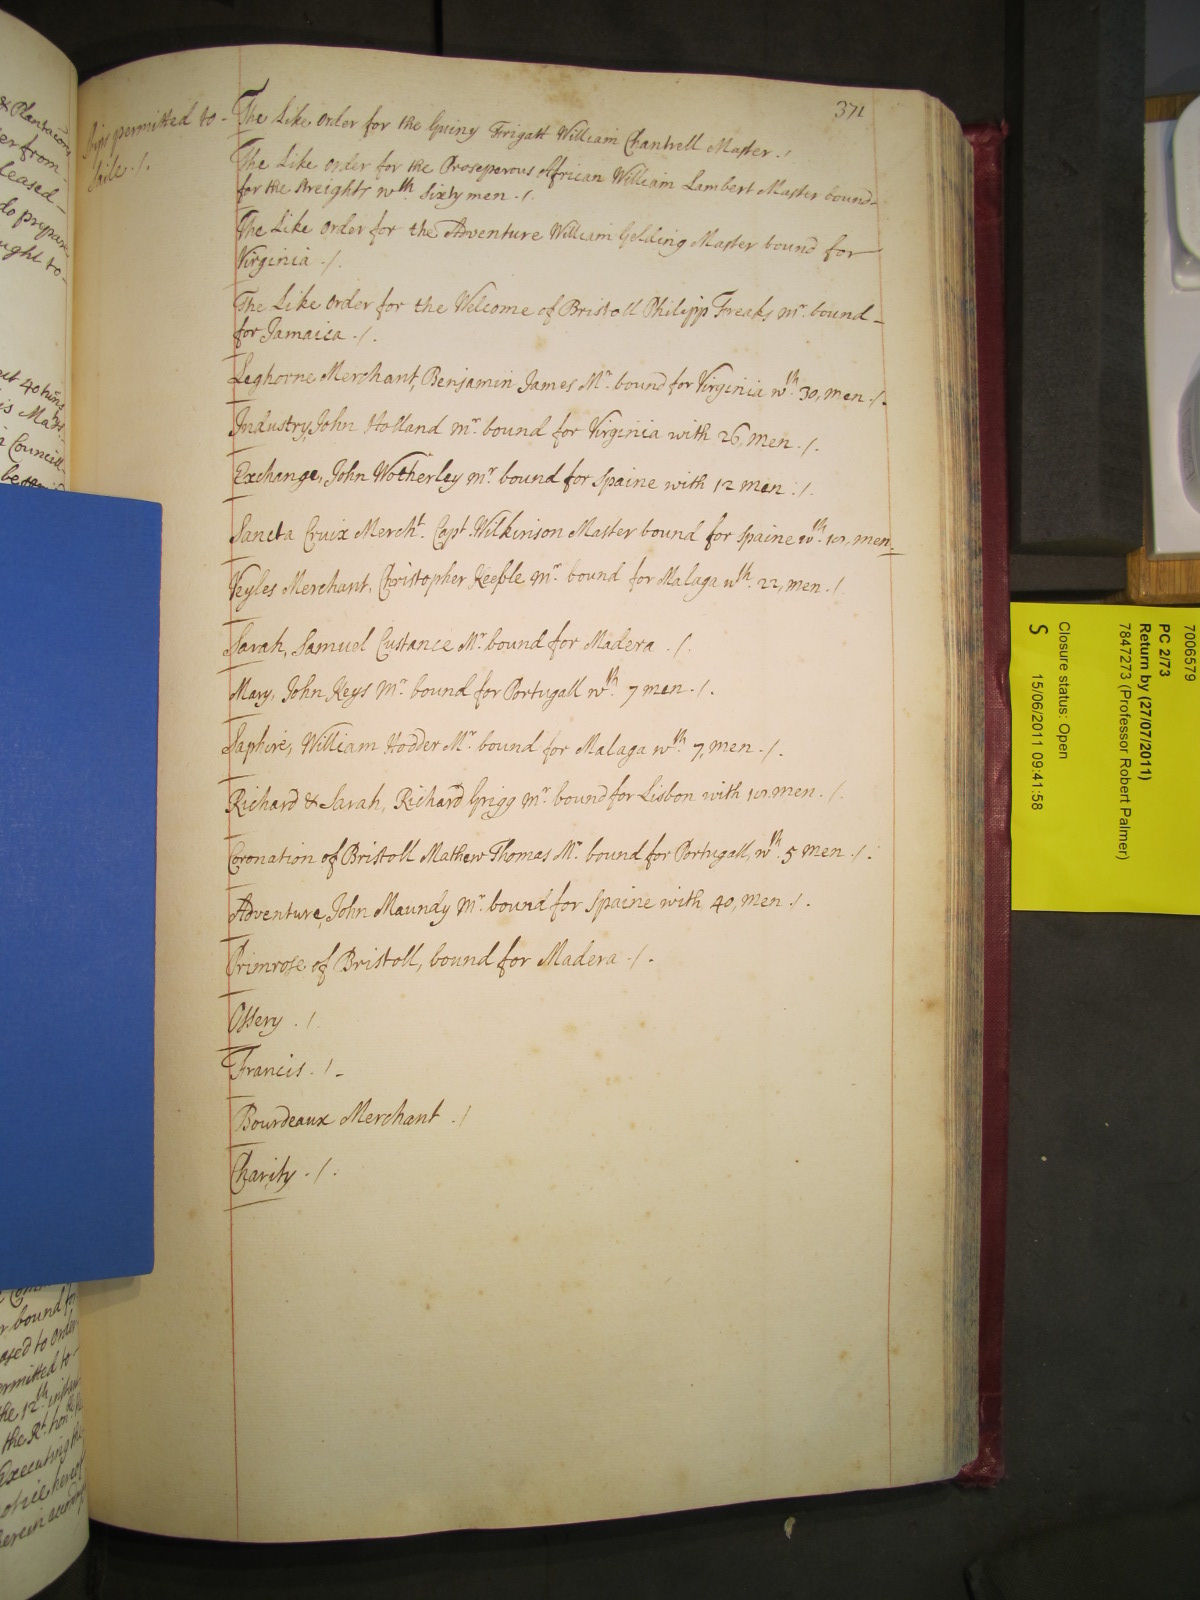 371
Ships permitted to -
Saile ./.
The Like Order for the Guiny Frigatt William Chantrell Master ./
The Like Order for the Proseperous African William Lambert Master bound-
for the Streights wth. Sixty men ./.
The Like Order for the Adventure William Gelding Master bound for
Virginia ./.
The Like Order for the Welcome of Bristoll Philipp Freaks mr. bound-
for Jamaica ./.
Leghorne Merchant, Benjamin James Mr. bound for Virginia wth. 30, men ./.
Industry, John Holland mr. bound for Virginia with 26, men ./.
Exchange, John Wotherley mr. bound for Spaine with 12 men ./.
Sancta Cruix Mercht. Capt. Wilkinson Master bound for Spaine wth. 10, men.
Veyles Merchant, Christopher Keeble mr. bound for Malaga wth. 22, men ./.
Sarah, Samuel Custance Mr. bound for Madera ./.
Mary, John Keys Mr. bound for Portugall wth. 7 men ./.
Saphire, William Hodder Mr. bound for Malaga wth. 7, men ./.
Richard & Sarah, Richard Grigg mr. bound for Lisbon with 10 men ./.
Coronation of Bristoll Mathew Thomas Mr. bound for Portugall, wth. 5 men ./.
Adventure, John Maundy Mr. bound for Spaine with 40, men ./.
Primrose of Bristoll, bound for Madera ./.
Ossery ./
Francis ./-
Bourdeaux Merchant ./
Charity ./.
& Plantacons
er from
leased -
do prepare
ought to-
is Maty
Council
r bound for
ased to Order
ermitted to -
the 12th instant
the Rt. honble
Executing the
otice hereof
herein accordingly
7006579
PC 2/73
Return by (27/07/2011)
7847273 (Professor Robert Palmer)
Closure status: Open
S 15/06/2011 09:41:58